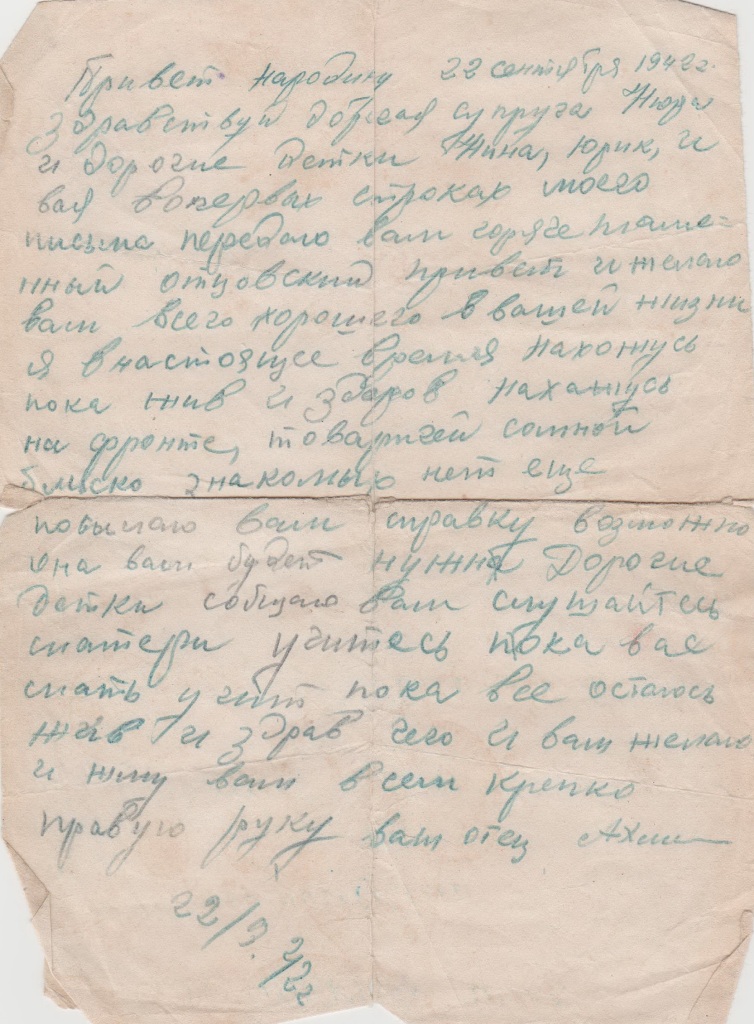 Привет народину 22 сентября 1942 г.
Здравствуй дорогая супруга Нюра
и дорогие детки Нина, Юрик, и
вая вопервах строках моего
письма передаю вам горяче пламе-
нный отцовский привет и желаю
вам всего хорошего в вашей жизни
я внастоящее время нахожусь
пока жив и здаров нахажусь
на фронте, товарищей сомной
блиско знакомых нет еще
посылаю вам справку возможно
она вам будет нужна Дорогие
детки собщаю вам слушайтесь
матери учитесь пока вас
мать учит пока все остаюсь
жив и здрав чего и вам желаю
и жму вам всем крепко
правую руку ваш отец
22/9. 42г